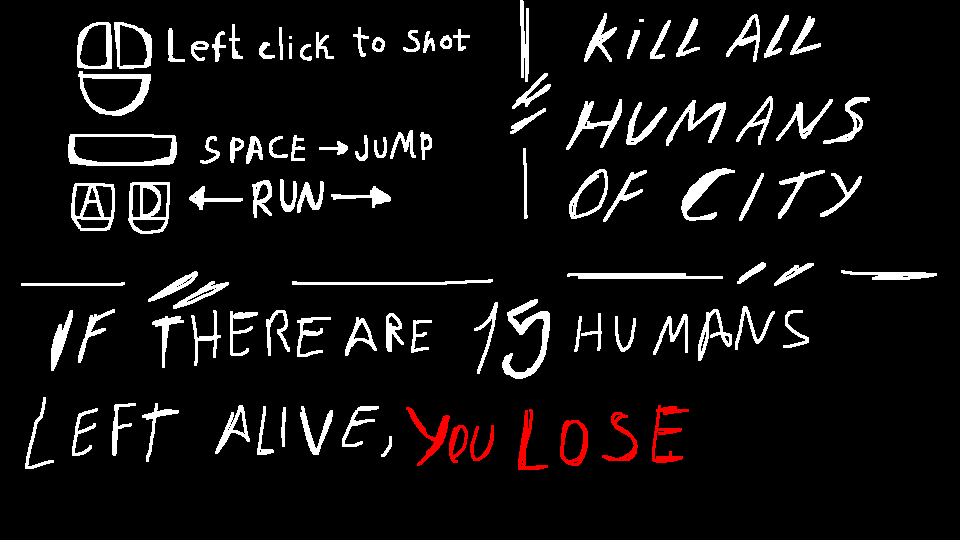 Left click to shot
SPACE → JUMP
A D ← RUN →
KiLL ALL
HUMANS
OF CITY
IF THERE ARE 15 HUMANS
LEFT ALIVE, YOU LOSE